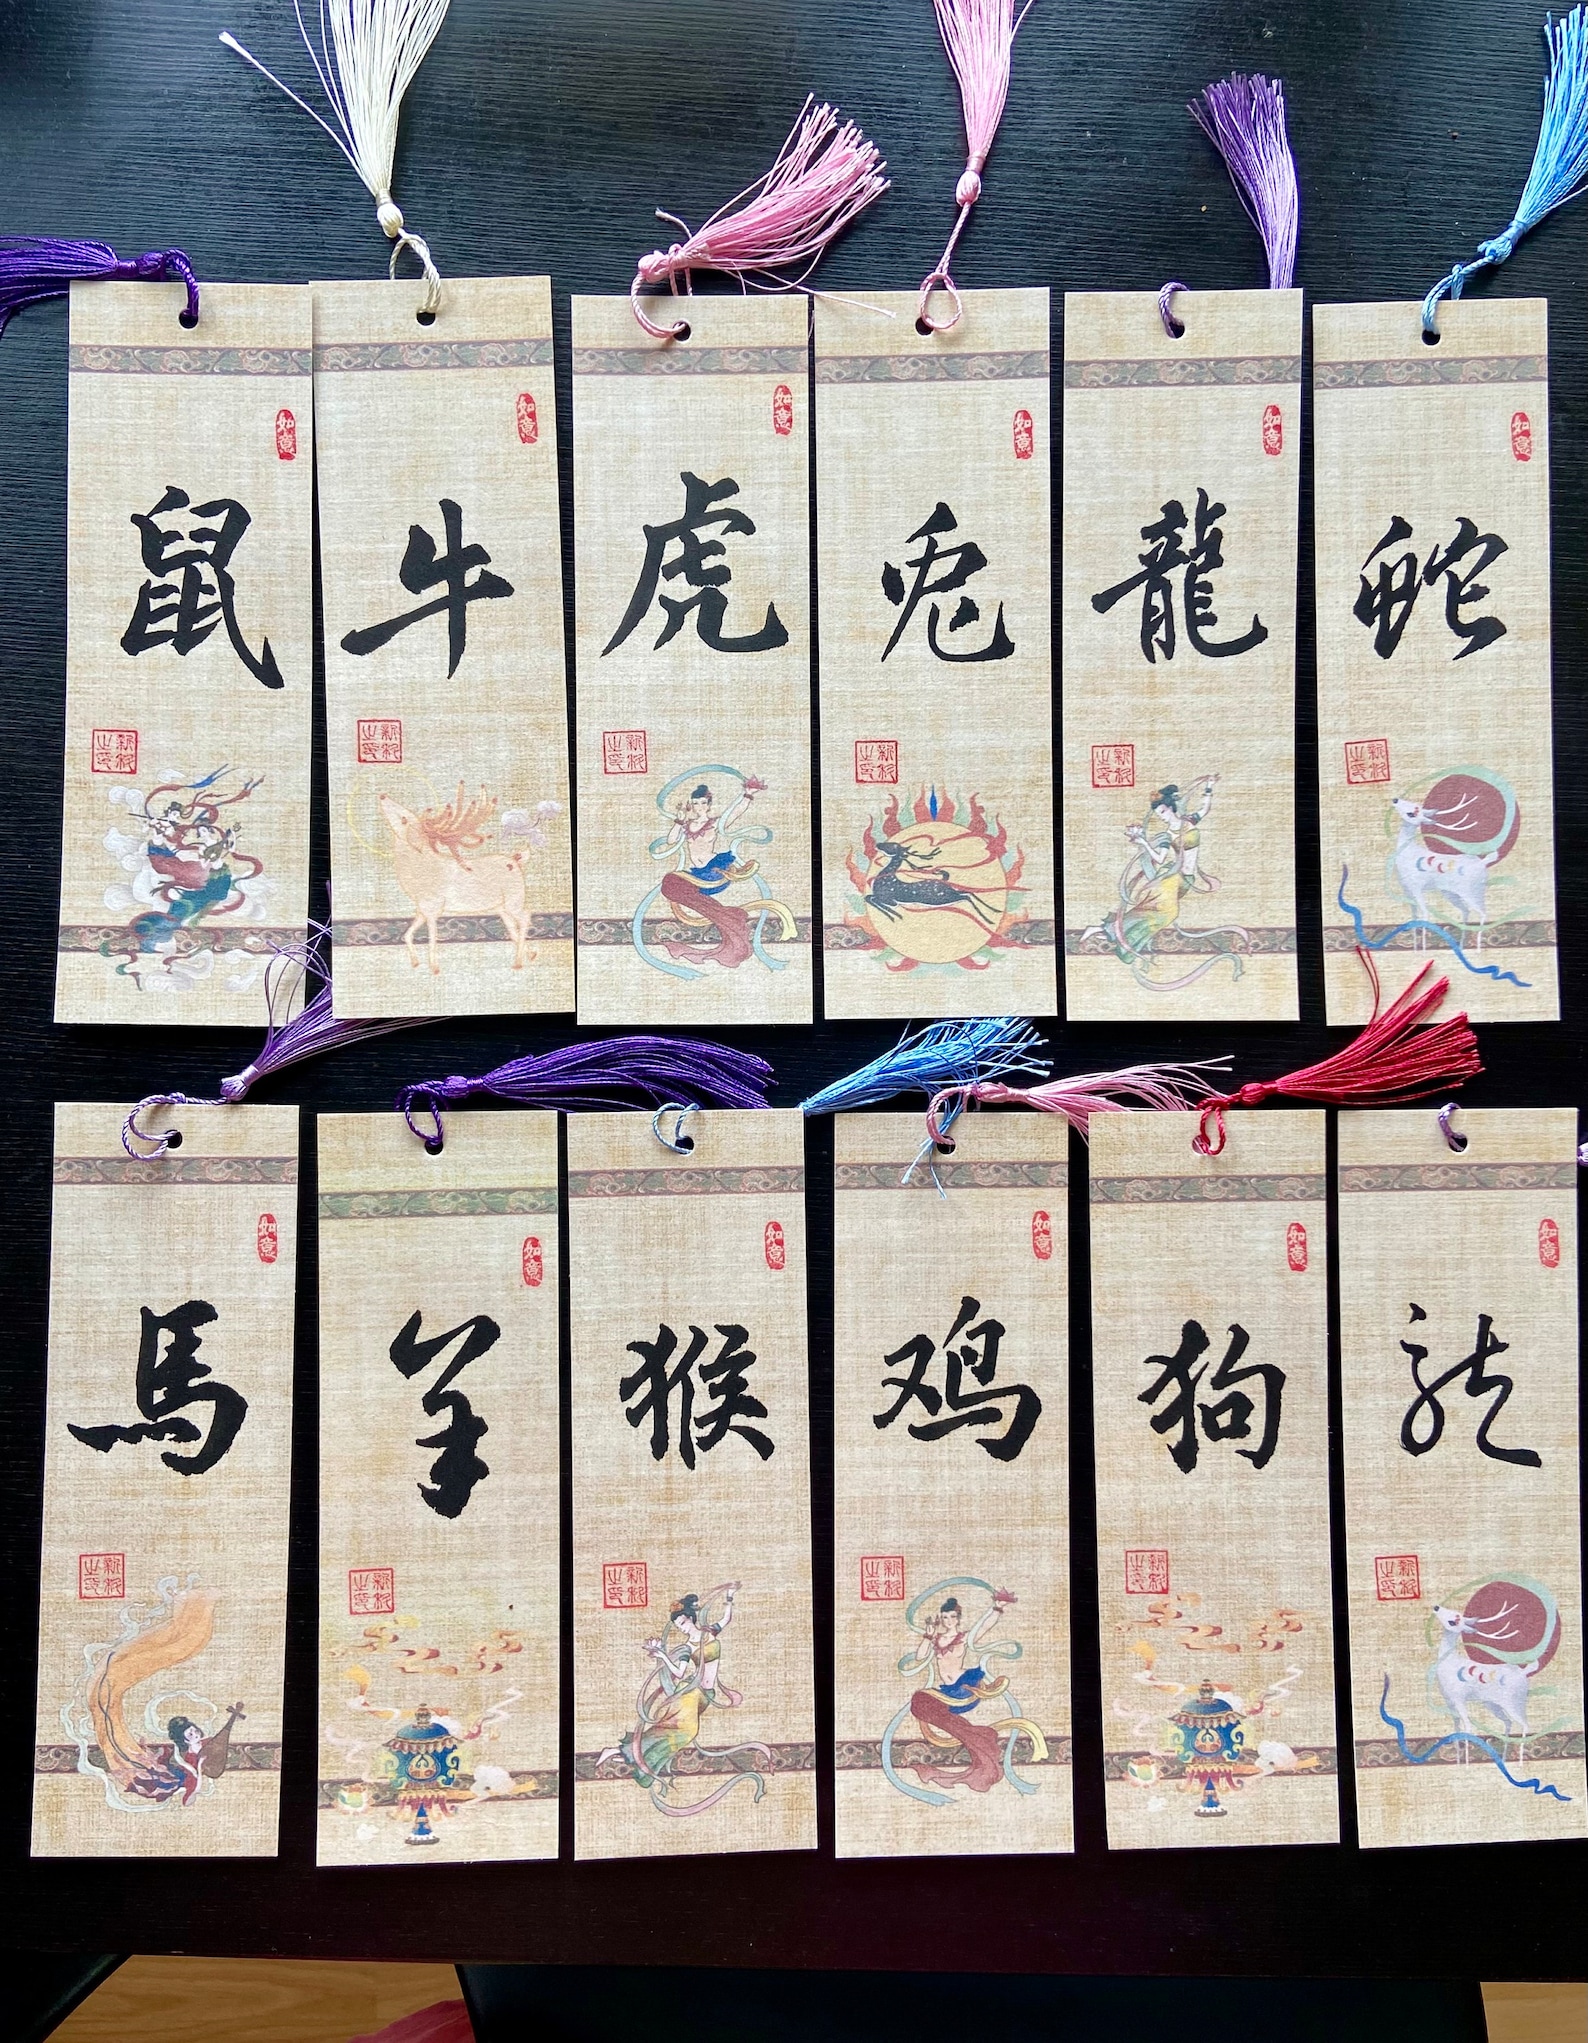 如意
鼠
如意
牛
如意
虎
如意
兔
如意
龍
如意
蛇
如意
馬
如意
羊
如意
猴
如意
鸡
如意
狗
如意
龍